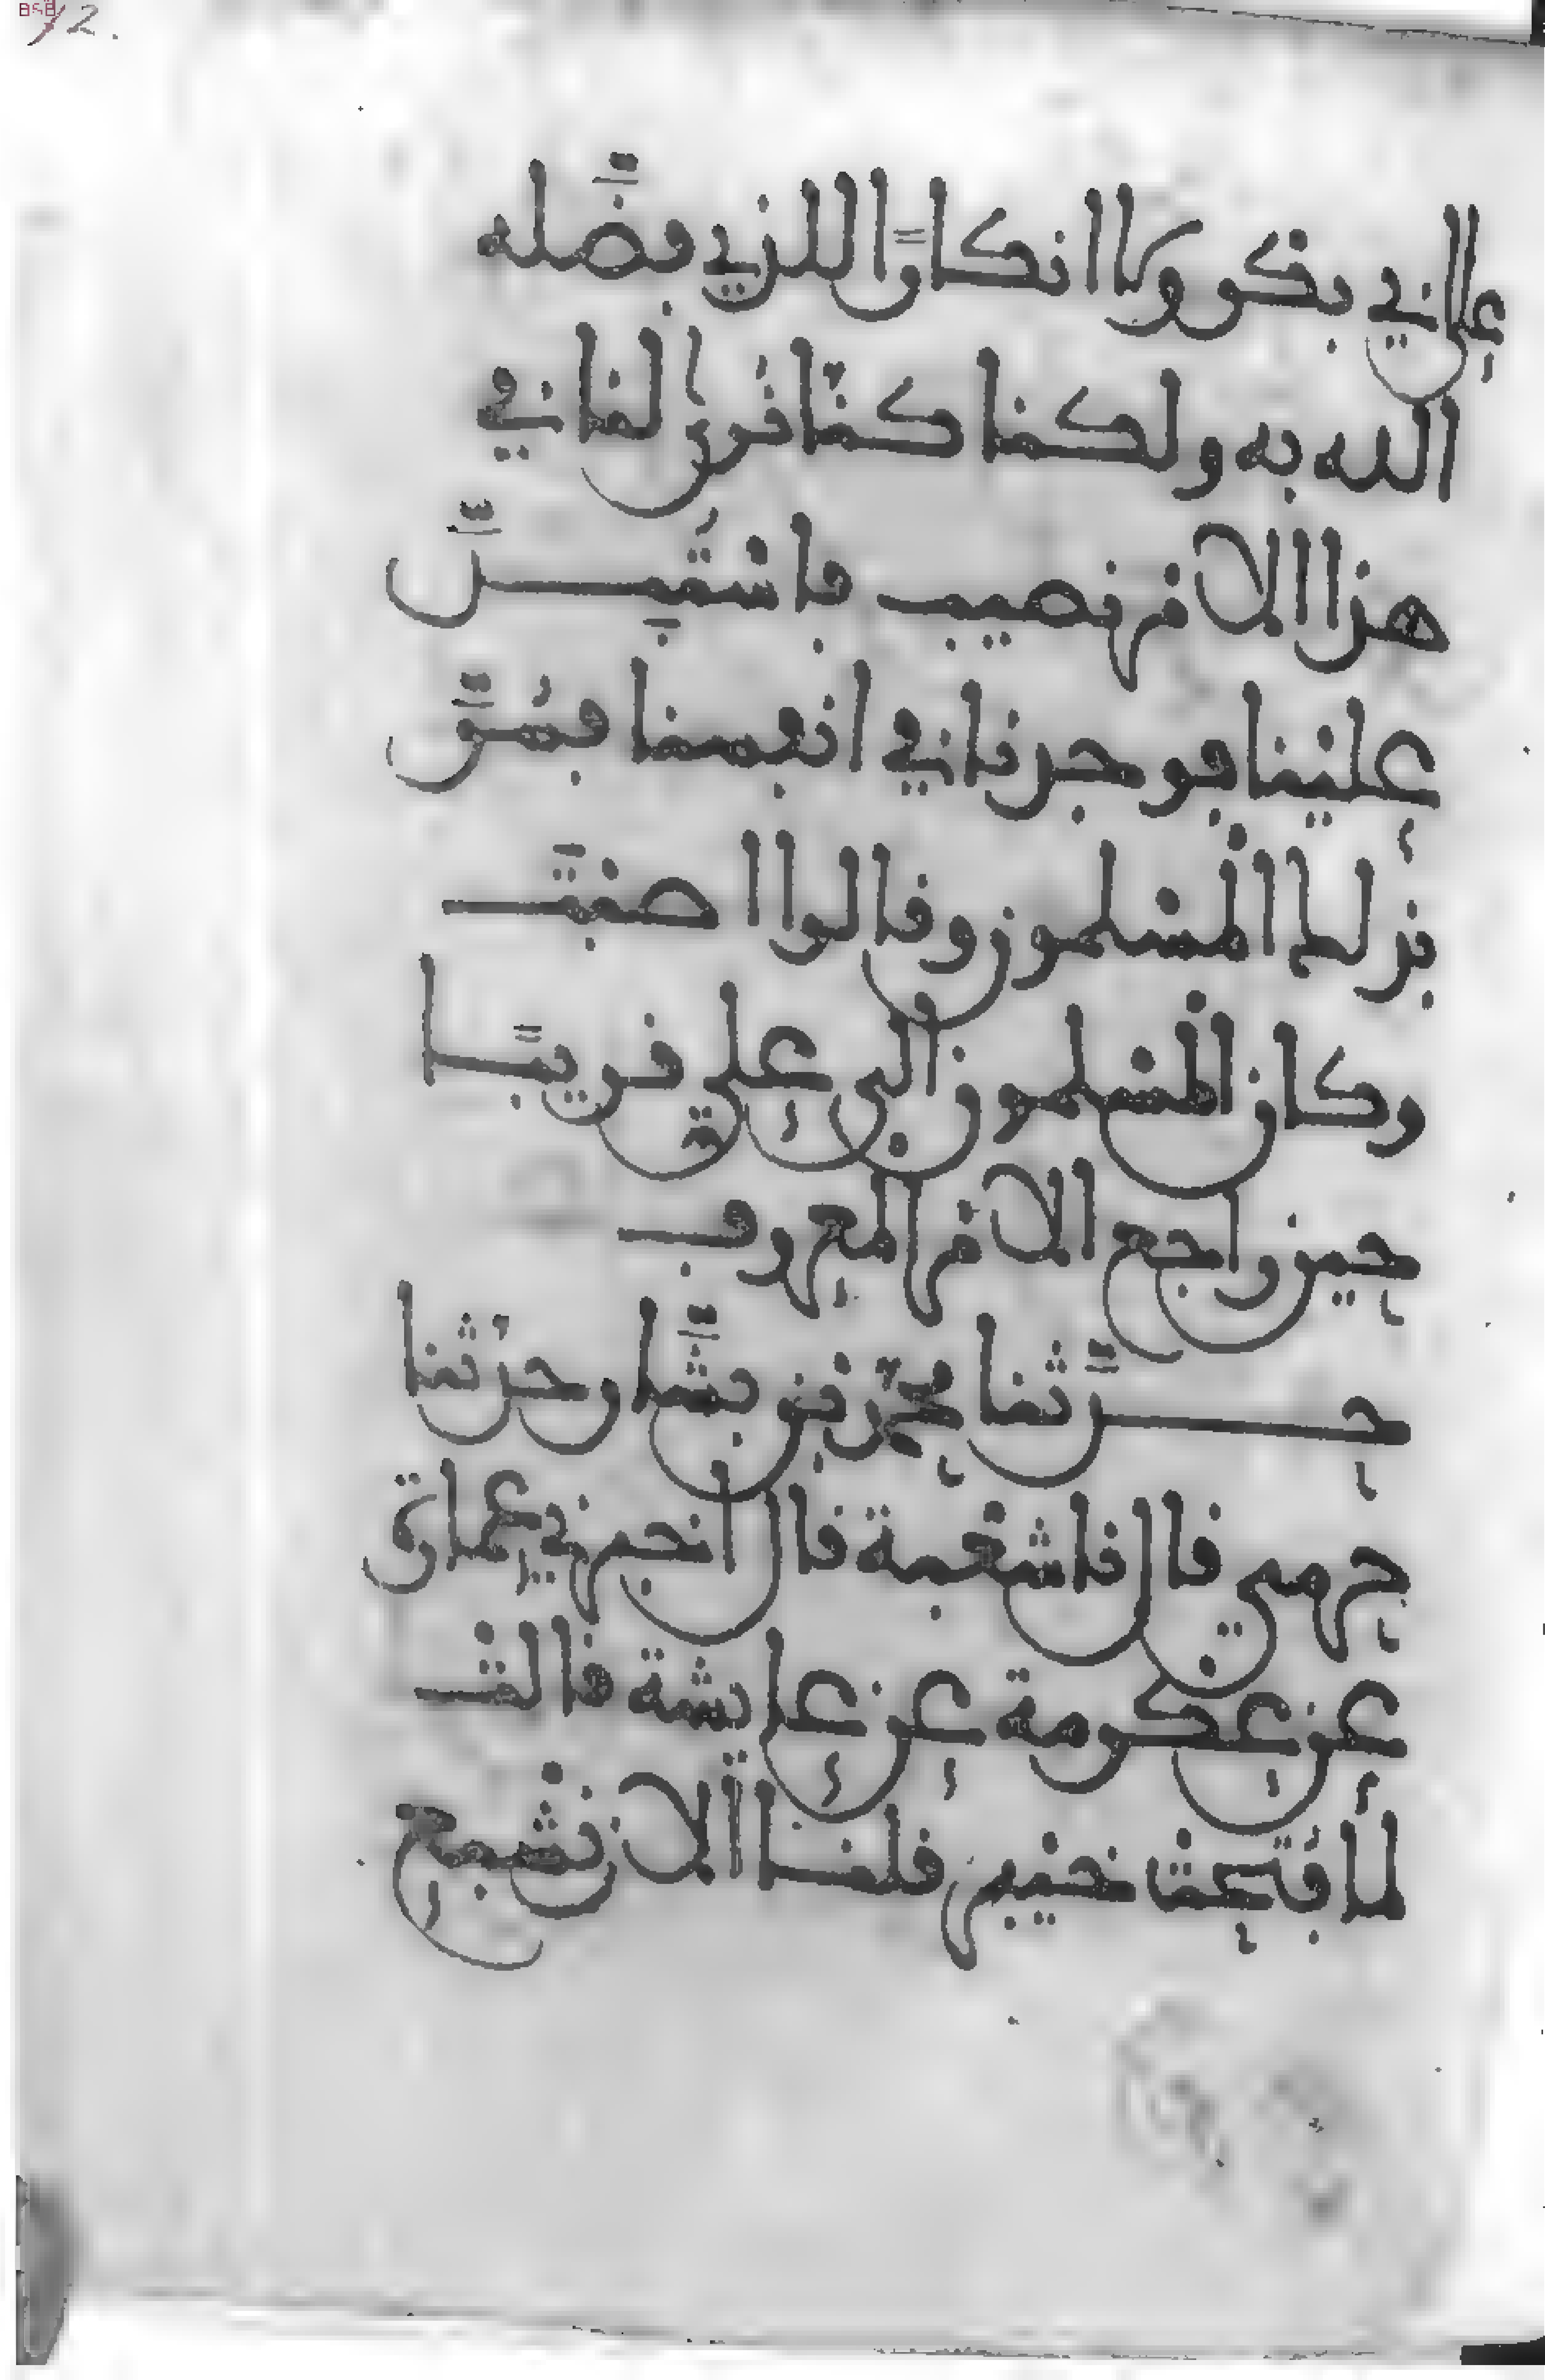 على ابي بكر ولا انكارًا للذي فضَّله
الله به ولكنا كنّا نرى لنا في
هذا الامر نصيب فاستُبِــدَّ
علينا فوجدنا في انفسنا فسُرَّ
بذلك المسلمون وقالوا اصبتَ
وكان المسلمون الى علي قريبًــا
حين راجع الامر المعروف
حــدَّثنا محمّد بن بشَّار وحدثنا
حرمي قال نا شعبة قال اخبرني عمارة
عن عكرمة عن عايشة قالت
لما فتحت خيبر قلنا الان نشبع